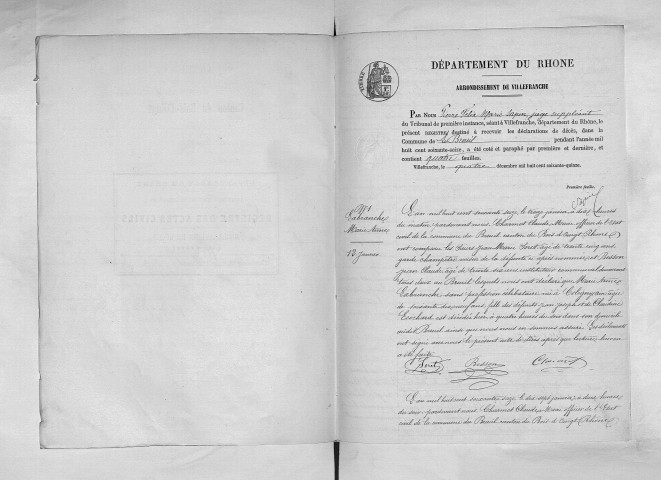 DÉPARTEMENT DU RHONE
ARRONDISSEMENT DE VILLEFRANCHE
PAR NOUS Félix Marie juge suppléant
du Tribunal de première instance, séant à Villefranche, département du Rhône, le
présent REGISTRE destiné à recevoir les déclarations de décès, dans la
Commune de Le Breuil pendant l'année mil
huit cent soixante-seize, a été coté et paraphé par première et dernière, et
contient quatre feuilles.
Villefranche, le quatre décembre mil huit cent soixante-quinze.
Première feuille.
N° 1
Labranche
Marie
13 janvier
L'an mil huit cent soixante seize le treize janvier à dix heures
du matin, pardevant nous Charmet Claude Marie officier de l'état
civil de la commune du Breuil canton du Bois d'Oingt (Rhône)
ont comparu les sieurs Jean Marie âgé de trente cinq ans
garde champêtre voisin de la défunte ci après nommée, et Besson
Jean Claude âgé de trente instituteur communal demeurant
tous deux au Breuil, lesquels nous ont déclaré que Marie
Labranche sans profession célibataire née à
de soixante ans, fille des défunts Joseph et de Claudine
est décédée hier à quatre heures du soir dans son domicile
audit Breuil ainsi que nous nous en sommes assuré. Les déclarants
ont signé avec nous le présent acte de décès après que lecture leur en
a été faite.
Besson Charmet
L'an mil huit cent soixante seize le dix sept janvier, à deux heures
du soir pardevant nous Charmet Claude Marie officier de l'état
civil de la commune du Breuil canton du Bois d'Oingt (Rhône)